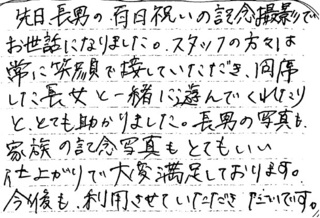 先日長男の百日祝いの記念撮影で
お世話になりました。スタッフの方々は
常に笑顔で接していただき、同席
した長女と一緒に遊んでくれたり
と、とても助かりました。長男の写真も、
家族の記念写真もとてもいい
仕上がりで大変満足しております。
今後も、利用させていただきたいです。